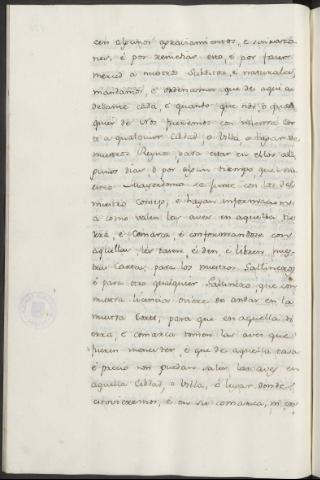 cen algunos agraviamientos, e sinrazo
nes, é por remediar esto, é por facer
merced a nuestros Subditos, e naturales,
mandamos, e ordenamos que de aqui a
delante cada, e quando que nos, o qual
quier de Nos fueremos con nuestra Cor
te a qualquier Cibdad, o Villa, o lugar de
nuestros Reynos para estar en ellos al
gunos dias, ó por algun tiempo que nu
estro Mayordomo se junte con los del
nuestro consejo, e hayan informacion
a como valen las aves en aquella tie
rra, é Comarca, é conformandose con
aquella, les tasen, é den, e libren nues
tras cartas, para los nuestros Gallineros
é para otro qualquier Gallinero, que con
nuestra licencia oviere de andar en la
nuestra Corte, para que en aquella ti
erra, é comarca tomen las aves que
ovieren menester, é que de aquella tasa
é precio non puedan valer las aves en
aquella Cibdad, o Villa, é lugar donde
estovieremos, é en su comarca, ni